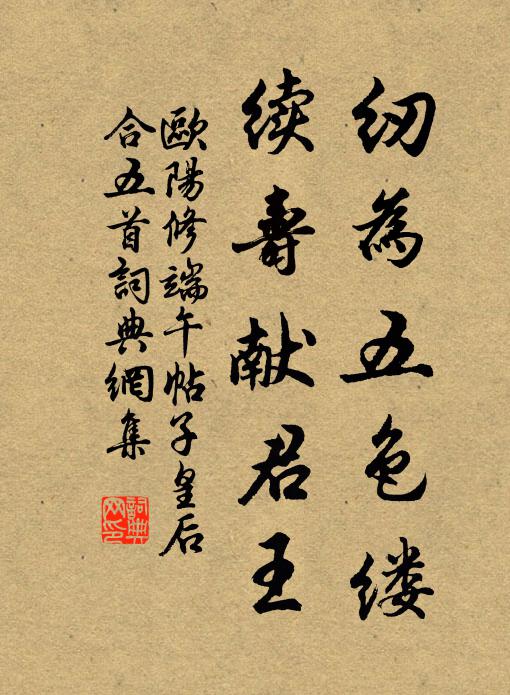 纫为五色缕
续寿献君王
歐陽修端午帖子皇后
合五首詞典網集
詞典
网印